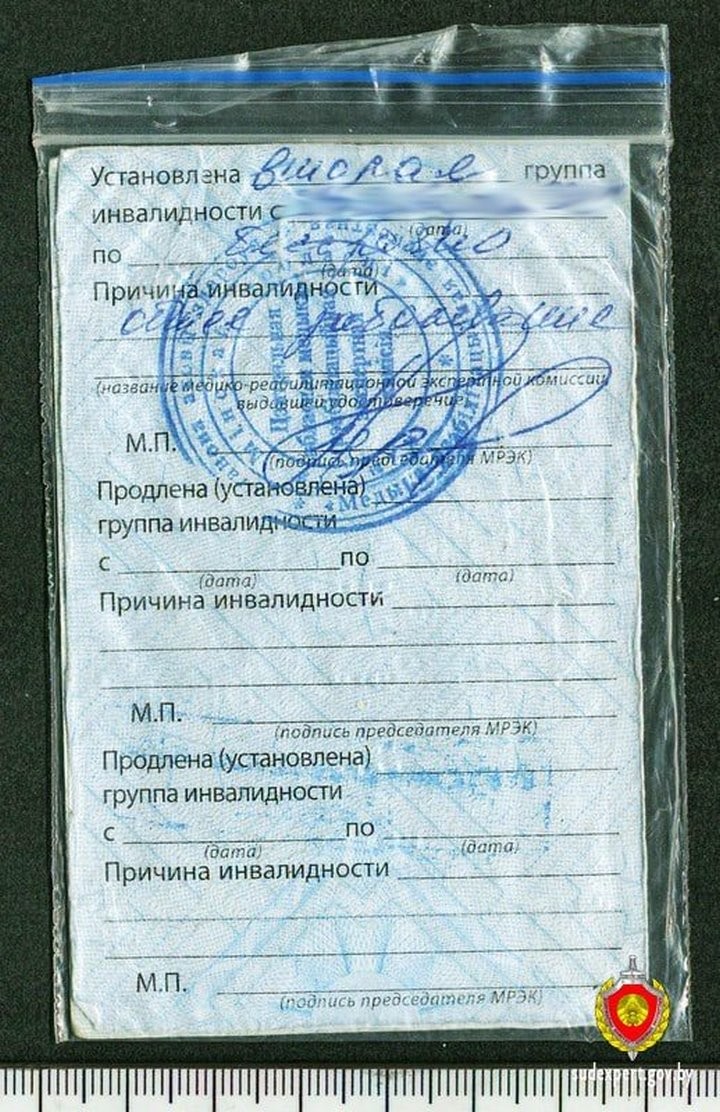 Установлена вторая группа
инвалидности с
(дата)
по бессрочно
(дата)
Причина инвалидности
общее заболевание
(название медико-реабилитационной экспертной комиссии,
выдавшей удостоверение)
М.П.
(подпись председателя МРЭК)
Продлена (установлена)
группа инвалидности
с по
(дата) (дата)
Причина инвалидности
М.П.
(подпись председателя МРЭК)
Продлена (установлена)
группа инвалидности
с по
(дата) (дата)
Причина инвалидности
М.П.
(подпись председателя МРЭК)
sudexpert.gov.by